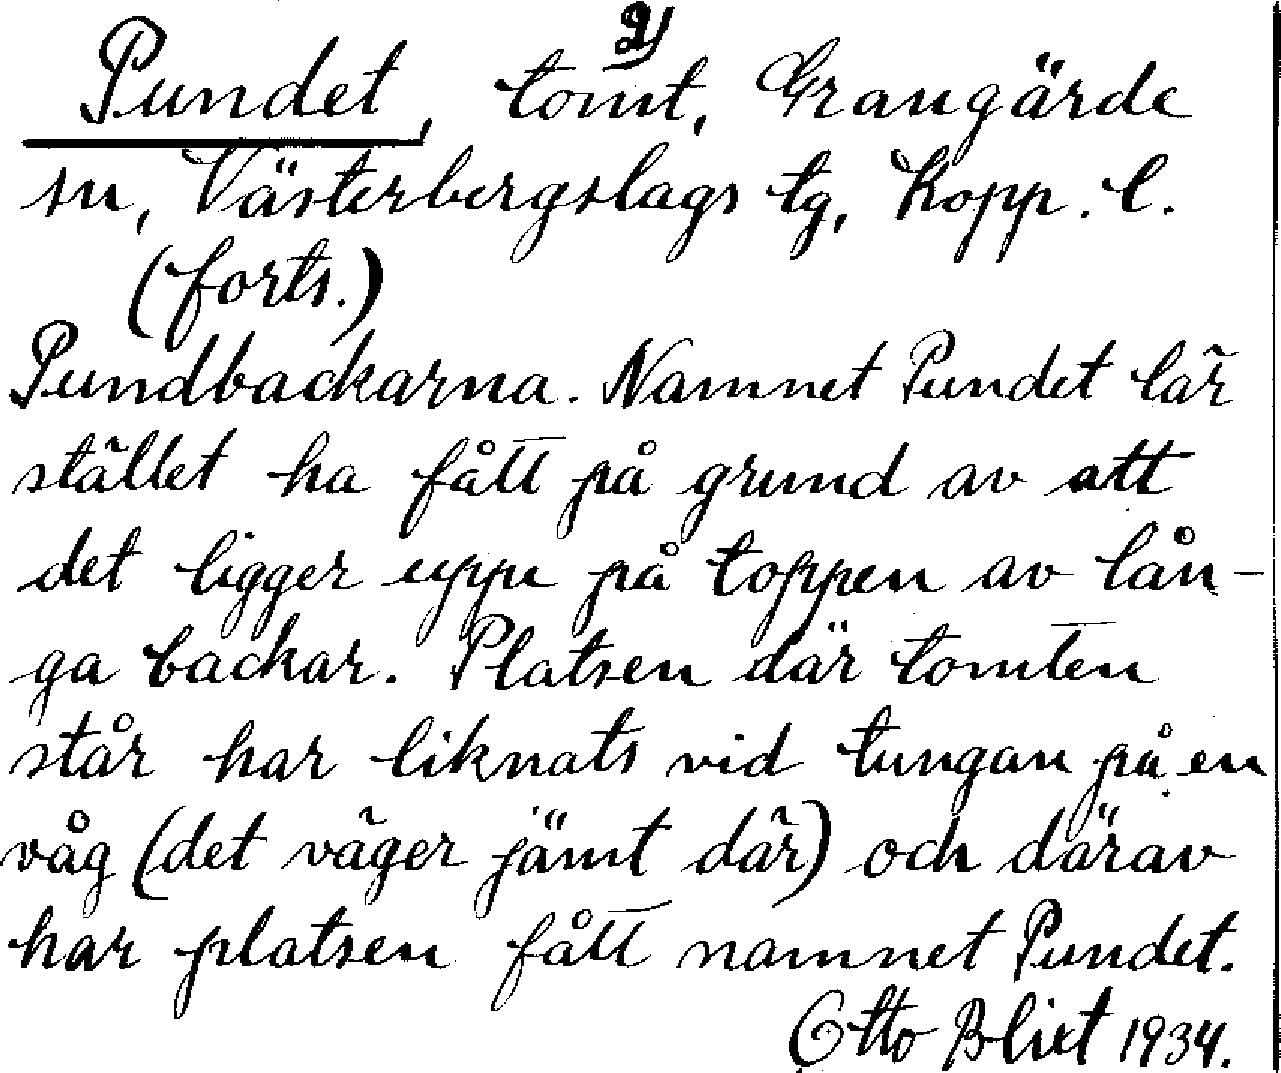 2)
Pundet, tomt, Grangärde
sn, Västerbergslags tg, Kopp. l.
(forts.)
Pundbackarna. Namnet Pundet lär
stället ha fått på grund av att
det ligger uppe på toppen av lån-
ga backar. Platsen där tomten
står har liknats vid tungan på en
våg (det väger jämt där) och därav
har platsen fått namnet Pundet.
Otto Blixt 1934.